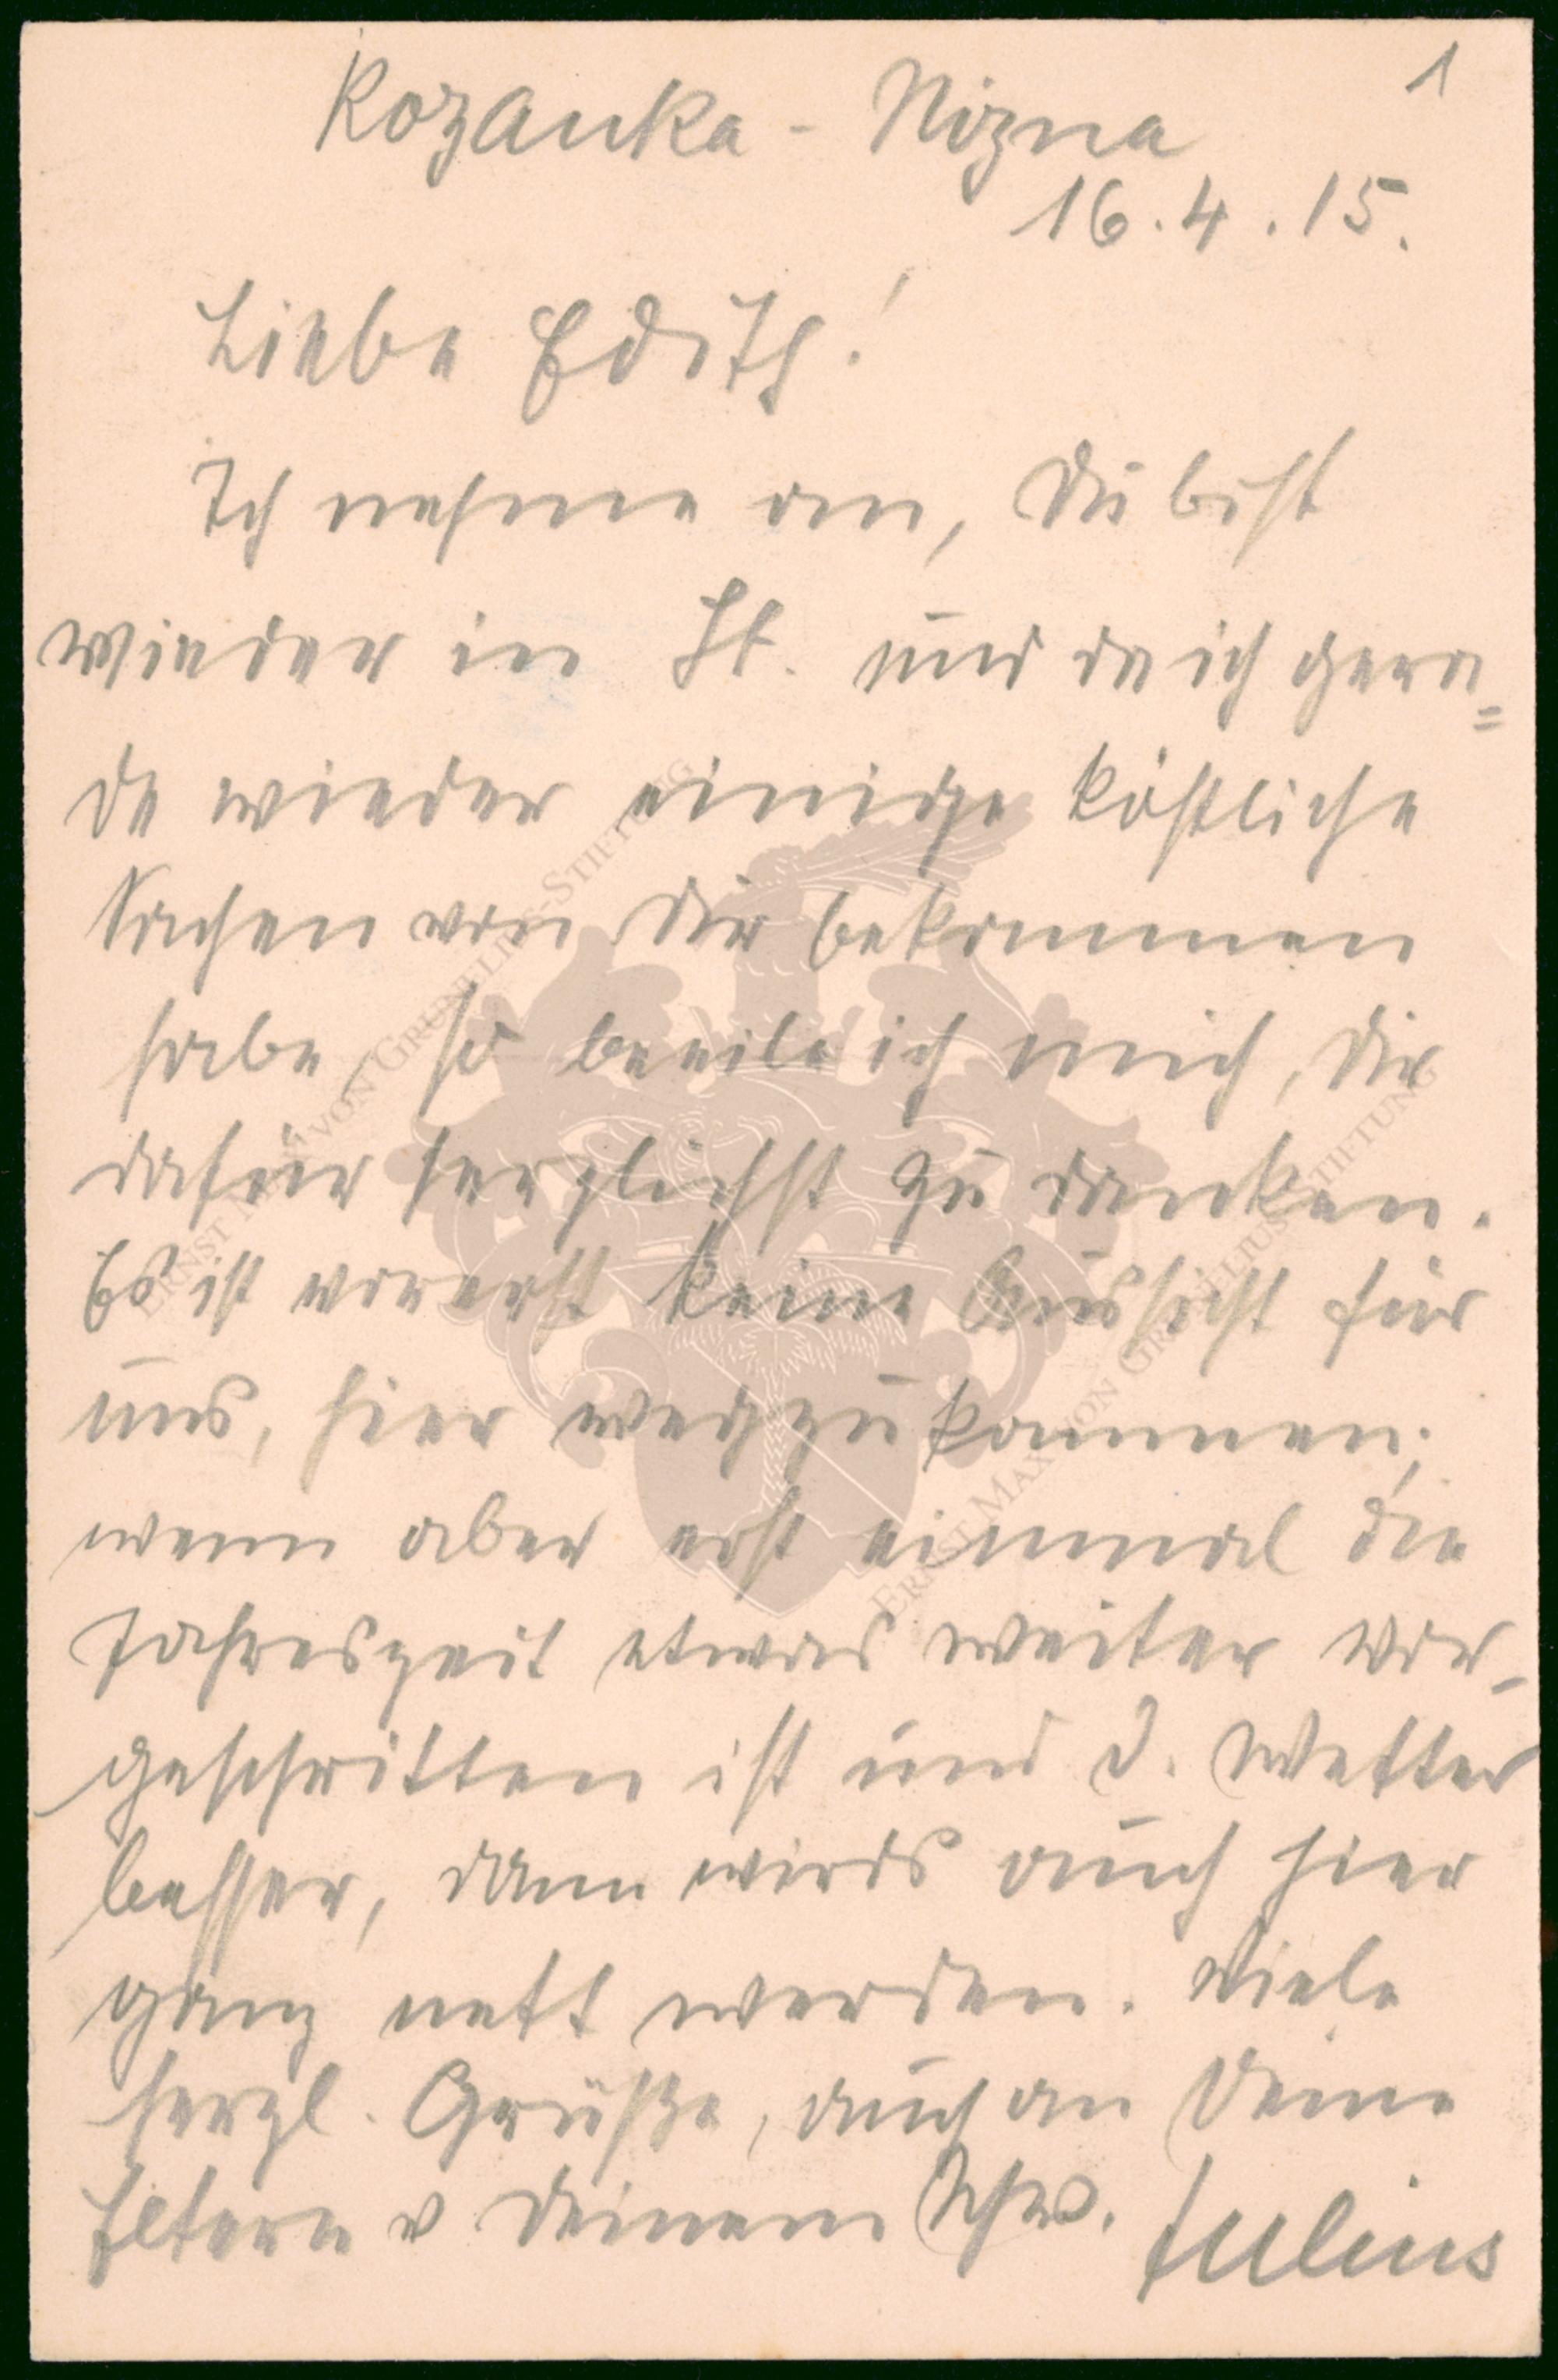 1
Rozanka - Nizna
16.4.15.
Liebe Edith!
Ich nehme an, Du bist
wieder in St. und da ich gera=
de wieder einige köstliche
Sachen von Dir bekommen
habe, so beeile ich mich, Dir
dafür herzlichst zu danken.
Es ist vorerst keine Aussicht für
uns, hier wegzukommen;
wenn aber erst einmal die
Jahreszeit etwas weiter vor-
geschritten ist und d. Wetter
besser, dann wirds auch hier
ganz nett werden. Viele
herzl. Grüße, auch an Deine
Eltern v Deinem Schw. Julius
ERNST MAX VON GRUNELIUS-STIFTUNG
ERNST MAX VON GRUNELIUS-STIFTUNG